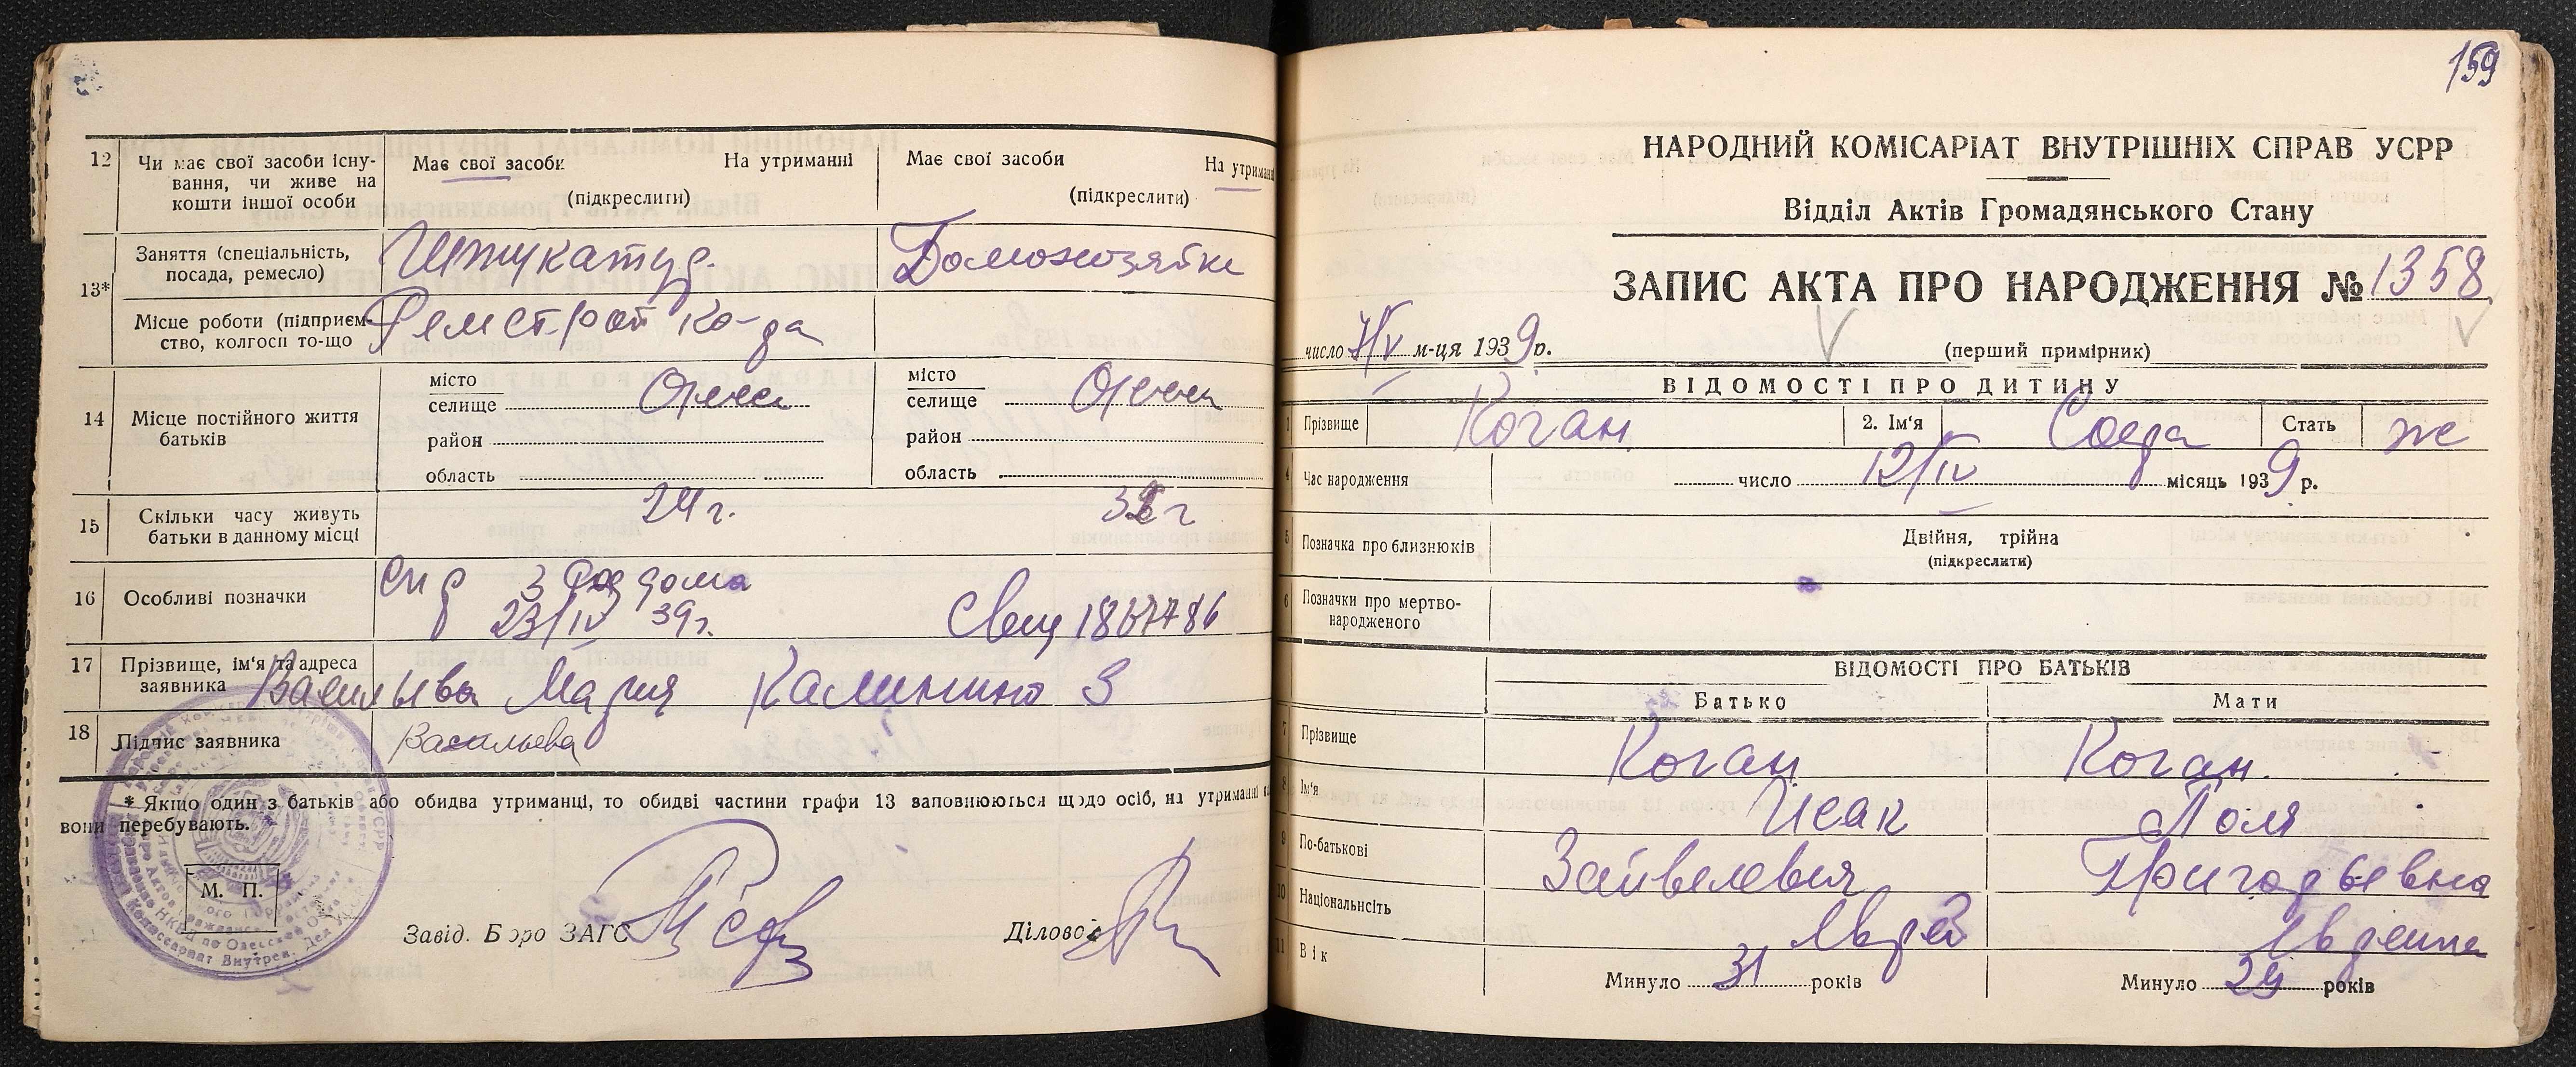 12 Чи має свої засоби існування, чи живе на кошти іншої особи
Має свої засоби На утриманні
(підкреслити)
Має свої засоби На утриманні
(підкреслити)
13* Заняття (спеціальність, посада, ремесло)
Штукатур.
Домохозяйка
Місце роботи (підприємство, колгосп то-що
Ремстрой к-ра
14 Місце постійного життя батьків
місто
селище Одесса
район
область
місто
селище Одесса
район
область
15 Скільки часу живуть батьки в данному місці
24 г.
г
16 Особливі позначки
спр 3 роддома
23/IV 39 г.
Свид 1867786
17 Прізвище, ім'я та адреса заявника
Васильева Мария Калинина 3
18 Підпис заявника
Васильева
* Якщо один з батьків або обидва утриманці, то обидві частини графи 13 заповнюються щодо осіб, на утриманні
вони перебувають.
М. П.
Завід. Бюро ЗАГС
Діловод
159
НАРОДНИЙ КОМІСАРІАТ ВНУТРІШНІХ СПРАВ УСРР
Відділ Актів Громадянського Стану
ЗАПИС АКТА ПРО НАРОДЖЕННЯ № 1358
число 7/V м-ця 1939 р.
(перший примірник)
ВІДОМОСТІ ПРО ДИТИНУ
1 Прізвище Коган 2. Ім'я Стать же
4 Час народження число 12/IV місяць 1939 р.
5 Позначка про близнюків
Двійня, трійна
(підкреслити)
6 Позначки про мертвонародженого
ВІДОМОСТІ ПРО БАТЬКІВ
Батько Мати
7 Прізвище Коган Коган.
8 Ім'я Исак Поля
9 По-батькові Зайвелевич
10 Національність Еврей Еврейка
11 Вік
Минуло 31 років
Минуло 29 років